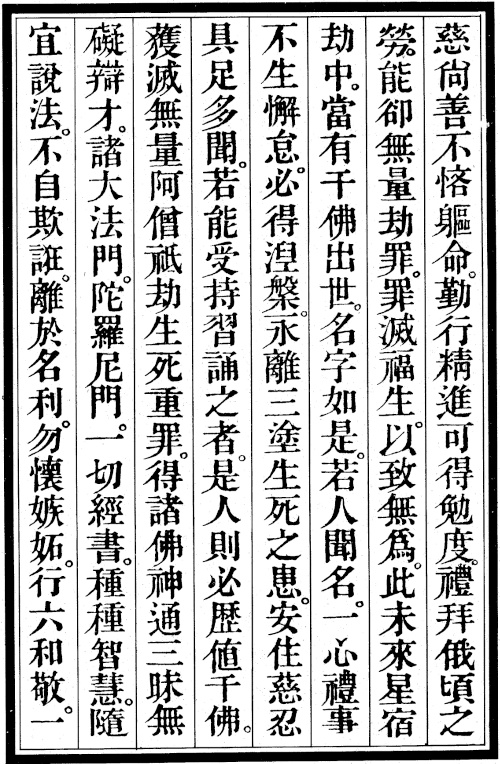 慈尙善不悋軀命。勤行精進可得勉度。禮拜俄頃之
勞。能卻無量劫罪。罪滅福生。以致無爲。此未來星宿
劫中。當有千佛出世。名字如是。若人聞名。一心禮事
不生懈怠。必得湼槃。永離三塗生死之患。安住慈忍
具足多聞。若能受持習誦之者。是人則必歷値千佛。
蒦滅無量阿僧祇劫生死重罪。得諸佛神通三昧無
礙辯才。諸大法門。陀羅尼門。一切經書。種種智慧。隨
宜說法。不自欺誑。離於名利。勿懷嫉妬。行六和敬。一